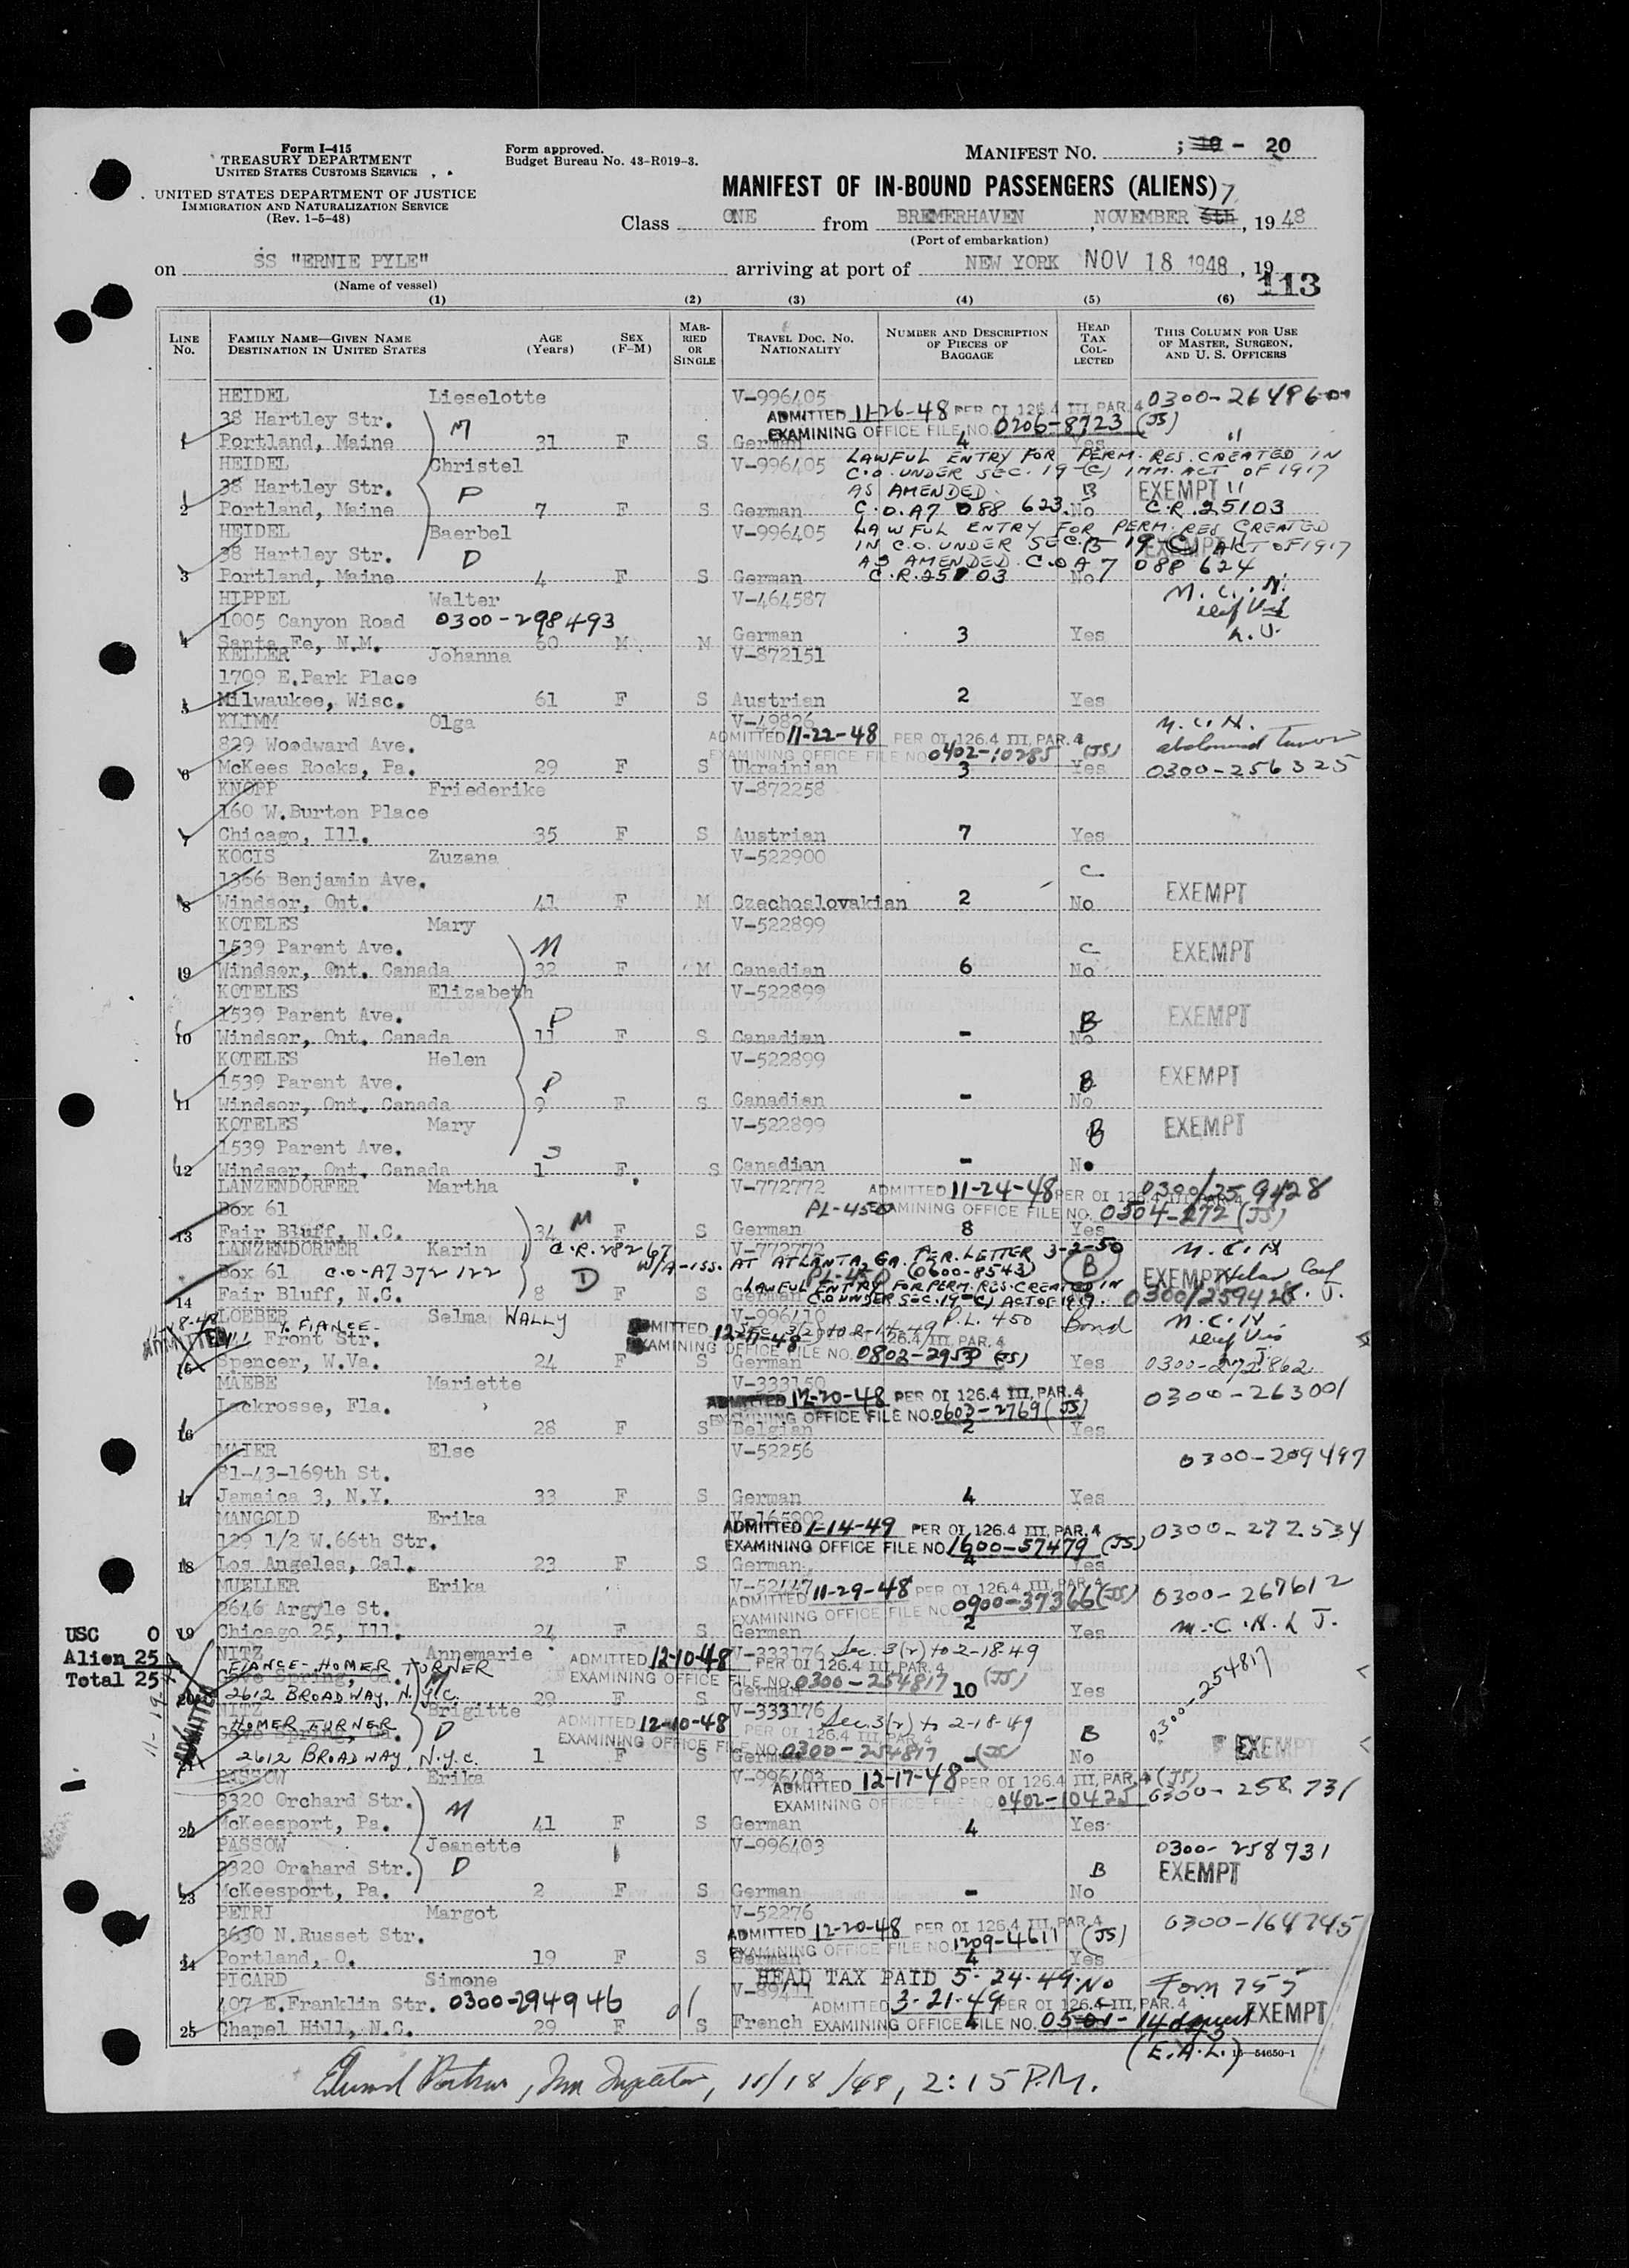 Form I-415
TREASURY DEPARTMENT
UNITED STATES CUSTOMS SERVICE
UNITED STATES DEPARTMENT OF JUSTICE
IMMIGRATION AND NATURALIZATION SERVICE
(Rev. 1-5-48)
Form approved.
Budget Bureau No. 43-R019-3.
MANIFEST NO. 20
MANIFEST OF IN-BOUND PASSENGERS (ALIENS)
Class ONE from BREMERHAVEN, NOVEMBER 6th 7, 1948
(Port of embarkation)
on SS "ERNIE PYLE" arriving at port of NEW YORK NOV 18 1948, 19
(Name of vessel)
113
(1) (2) (3) (4) (5) (6)
LINE NO. FAMILY NAME—GIVEN NAME DESTINATION IN UNITED STATES AGE (Years) SEX (F-M) MARRIED OR SINGLE TRAVEL DOC. NO. NATIONALITY NUMBER AND DESCRIPTION OF PIECES OF BAGGAGE HEAD TAX COLLECTED THIS COLUMN FOR USE OF MASTER, SURGEON, AND U. S. OFFICERS
HEIDEL Lieselotte V-996405 0300-264986
38 Hartley Str. M ADMITTED 11-26-48 PER OI 126.4 III, PAR. 4
EXAMINING OFFICE FILE NO. 0206-8723 (JS)
1 Portland, Maine 31 F S German 4 Yes "
HEIDEL Christel V-996405 LAWFUL ENTRY FOR PERM. RES. CREATED IN
C.O. UNDER SEC. 19 (C) IMM. ACT OF 1917
38 Hartley Str. P AS AMENDED. B EXEMPT "
2 Portland, Maine 7 F S German C.O. A7 088 623. No C.R. 25103
HEIDEL Baerbel V-996405 LAWFUL ENTRY FOR PERM. RES. CREATED
38 Hartley Str. D IN C.O. UNDER SEC. 19 (C) ACT OF 1917 B EXEMPT
AS AMENDED. C.O A7 088 624
3 Portland, Maine 4 F S German C.R. 25103 No
HIPPEL Walter V-464587 M.C.H.
1005 Canyon Road 0300-298493
4 Santa Fe, N.M. 60 M M German 3 Yes
KELLER Johanna V-872151
1709 E.Park Place
5 Milwaukee, Wisc. 61 F S Austrian 2 Yes
KLIMM Olga V-49826 M.C.H.
829 Woodward Ave. ADMITTED 11-22-48 PER OI 126.4 III, PAR. 4
EXAMINING OFFICE FILE NO. 0402-10285 (JS)
6 McKees Rocks, Pa. 29 F S Ukrainian 3 Yes 0300-256325
KNOPP Friederike V-872258
160 W.Burton Place
7 Chicago, Ill. 35 F S Austrian 7 Yes
KOCIS Zuzana V-522900
1366 Benjamin Ave. C EXEMPT
8 Windsor, Ont. 41 F M Czechoslovakian 2 No
KOTELES Mary V-522899
1539 Parent Ave. M C EXEMPT
9 Windsor, Ont. Canada 32 F M Canadian 6 No
KOTELES Elizabeth V-522899
1539 Parent Ave. P B EXEMPT
10 Windsor, Ont. Canada 11 F S Canadian - No
KOTELES Helen V-522899
1539 Parent Ave. P B EXEMPT
11 Windsor, Ont. Canada 9 F S Canadian - No
KOTELES Mary V-522899
1539 Parent Ave. B EXEMPT
12 Windsor, Ont. Canada 1 F S Canadian - No
LANZENDORFER Martha V-772772 ADMITTED 11-24-48 PER OI 126.4 III, PAR. 4 0300/259428
Box 61 PL-450 EXAMINING OFFICE FILE NO. 0504-272 (JS)
13 Fair Bluff, N.C. 34 M F S German 8 Yes
LANZENDORFER Karin C.R. 28267 V-772772 M.C.H
W/A-ISS. AT ATLANTA, GA. PER. LETTER 3-2-50
Box 61 C.O-A7 372 122 D PL-450 (0600-8543) B EXEMPT
LAWFUL ENTRY FOR PERM. RES. CREATED IN
14 Fair Bluff, N.C. 8 F S German C.O UNDER SEC. 19 (C) ACT OF 1917. 0300/259428
LOEBER Selma WALLY V-996410 P.L. 450 Bond M.C.H.
FIANCE
Front Str. ADMITTED 12-11-48 PER OI 126.4 III, PAR. 4
EXAMINING OFFICE FILE NO. 0802-2950 (JS)
15 Spencer, W.Va. 24 F S German Yes 0300-272862
MAEBE Mariette V-333150 0300-263001
Lackrosse, Fla. ADMITTED 12-20-48 PER OI 126.4 III, PAR. 4
EXAMINING OFFICE FILE NO. 0603-2769 (JS)
16 28 F S Belgian 2 Yes
MAIER Else V-52256 0300-209497
81-43-169th St.
17 Jamaica 3, N.Y. 33 F S German 4 Yes
MANGOLD Erika V-165802
129 1/2 W.66th Str. ADMITTED 1-14-49 PER OI 126.4 III, PAR. 4 0300-272534
EXAMINING OFFICE FILE NO. 1600-57479 (JS)
18 Los Angeles, Cal. 23 F S German 4 Yes
MUELLER Erika V-52447
2646 Argyle St. ADMITTED 11-29-48 PER OI 126.4 III, PAR. 4 0300-267612
EXAMINING OFFICE FILE NO. 0900-37366 (JS)
19 Chicago 25, Ill. 24 F S German 2 Yes M.C.H. L J.
USC 0
Alien 25
Total 25
NITZ Annemarie V-333176 Sec. 3(2) to 2-18-49
FIANCE-HOMER TURNER ADMITTED 12-10-48 PER OI 126.4 III, PAR. 4
Cave Spring, Ga. M EXAMINING OFFICE FILE NO. 0300-254817 (JS)
20 2612 BROADWAY, N.Y.C. 29 F S German 10 Yes 0300-254817
ADMITTED
NITZ Brigitte V-333176 Sec. 3(2) to 2-18-49
HOMER TURNER D ADMITTED 12-10-48 PER OI 126.4 III, PAR. 4 B EXEMPT
Cave Spring, Ga. EXAMINING OFFICE FILE NO. 0300-254817
2612 BROADWAY, N.Y.C. 1 F S German - No
PASSOW Erika V-996403
3320 Orchard Str. M ADMITTED 12-17-48 PER OI 126.4 III, PAR. 4 (JS)
EXAMINING OFFICE FILE NO. 0402-10425 0300-258731
22 McKeesport, Pa. 41 F S German 4 Yes
PASSOW Jeanette V-996403 0300-258731
3320 Orchard Str. D B EXEMPT
23 McKeesport, Pa. 2 F S German - No
PETRI Margot V-52276 0300-164745
3630 N.Russet Str. ADMITTED 12-20-48 PER OI 126.4 III, PAR. 4
EXAMINING OFFICE FILE NO. 1209-4611 (JS)
24 Portland, O. 19 F S German 4 Yes
PICARD Simone HEAD TAX PAID 5-24-49. No Form 755
407 E.Franklin Str. 0300-294946 V-89411 ADMITTED 3-21-49 PER OI 126.4 III, PAR. 4 EXEMPT
25 Chapel Hill, N.C. 29 F S French EXAMINING OFFICE FILE NO.
(E.A.L.) 16—54650-1
11/18/48, 2:15 P.M.